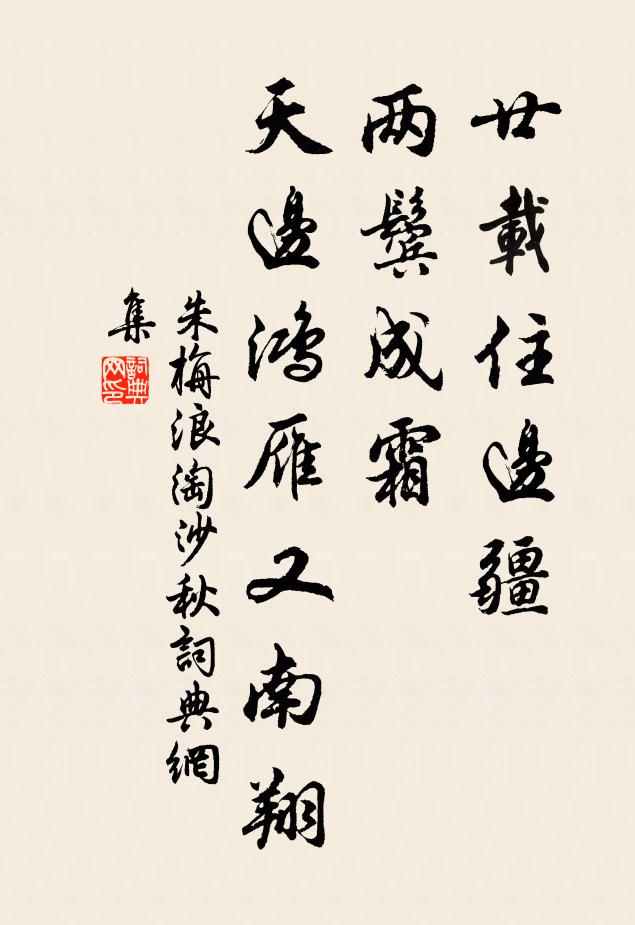 廿載住邊疆
两鬓成霜
天邊鴻雁又南翔
朱梅浪淘沙秋詞典網
集
詞典
网印